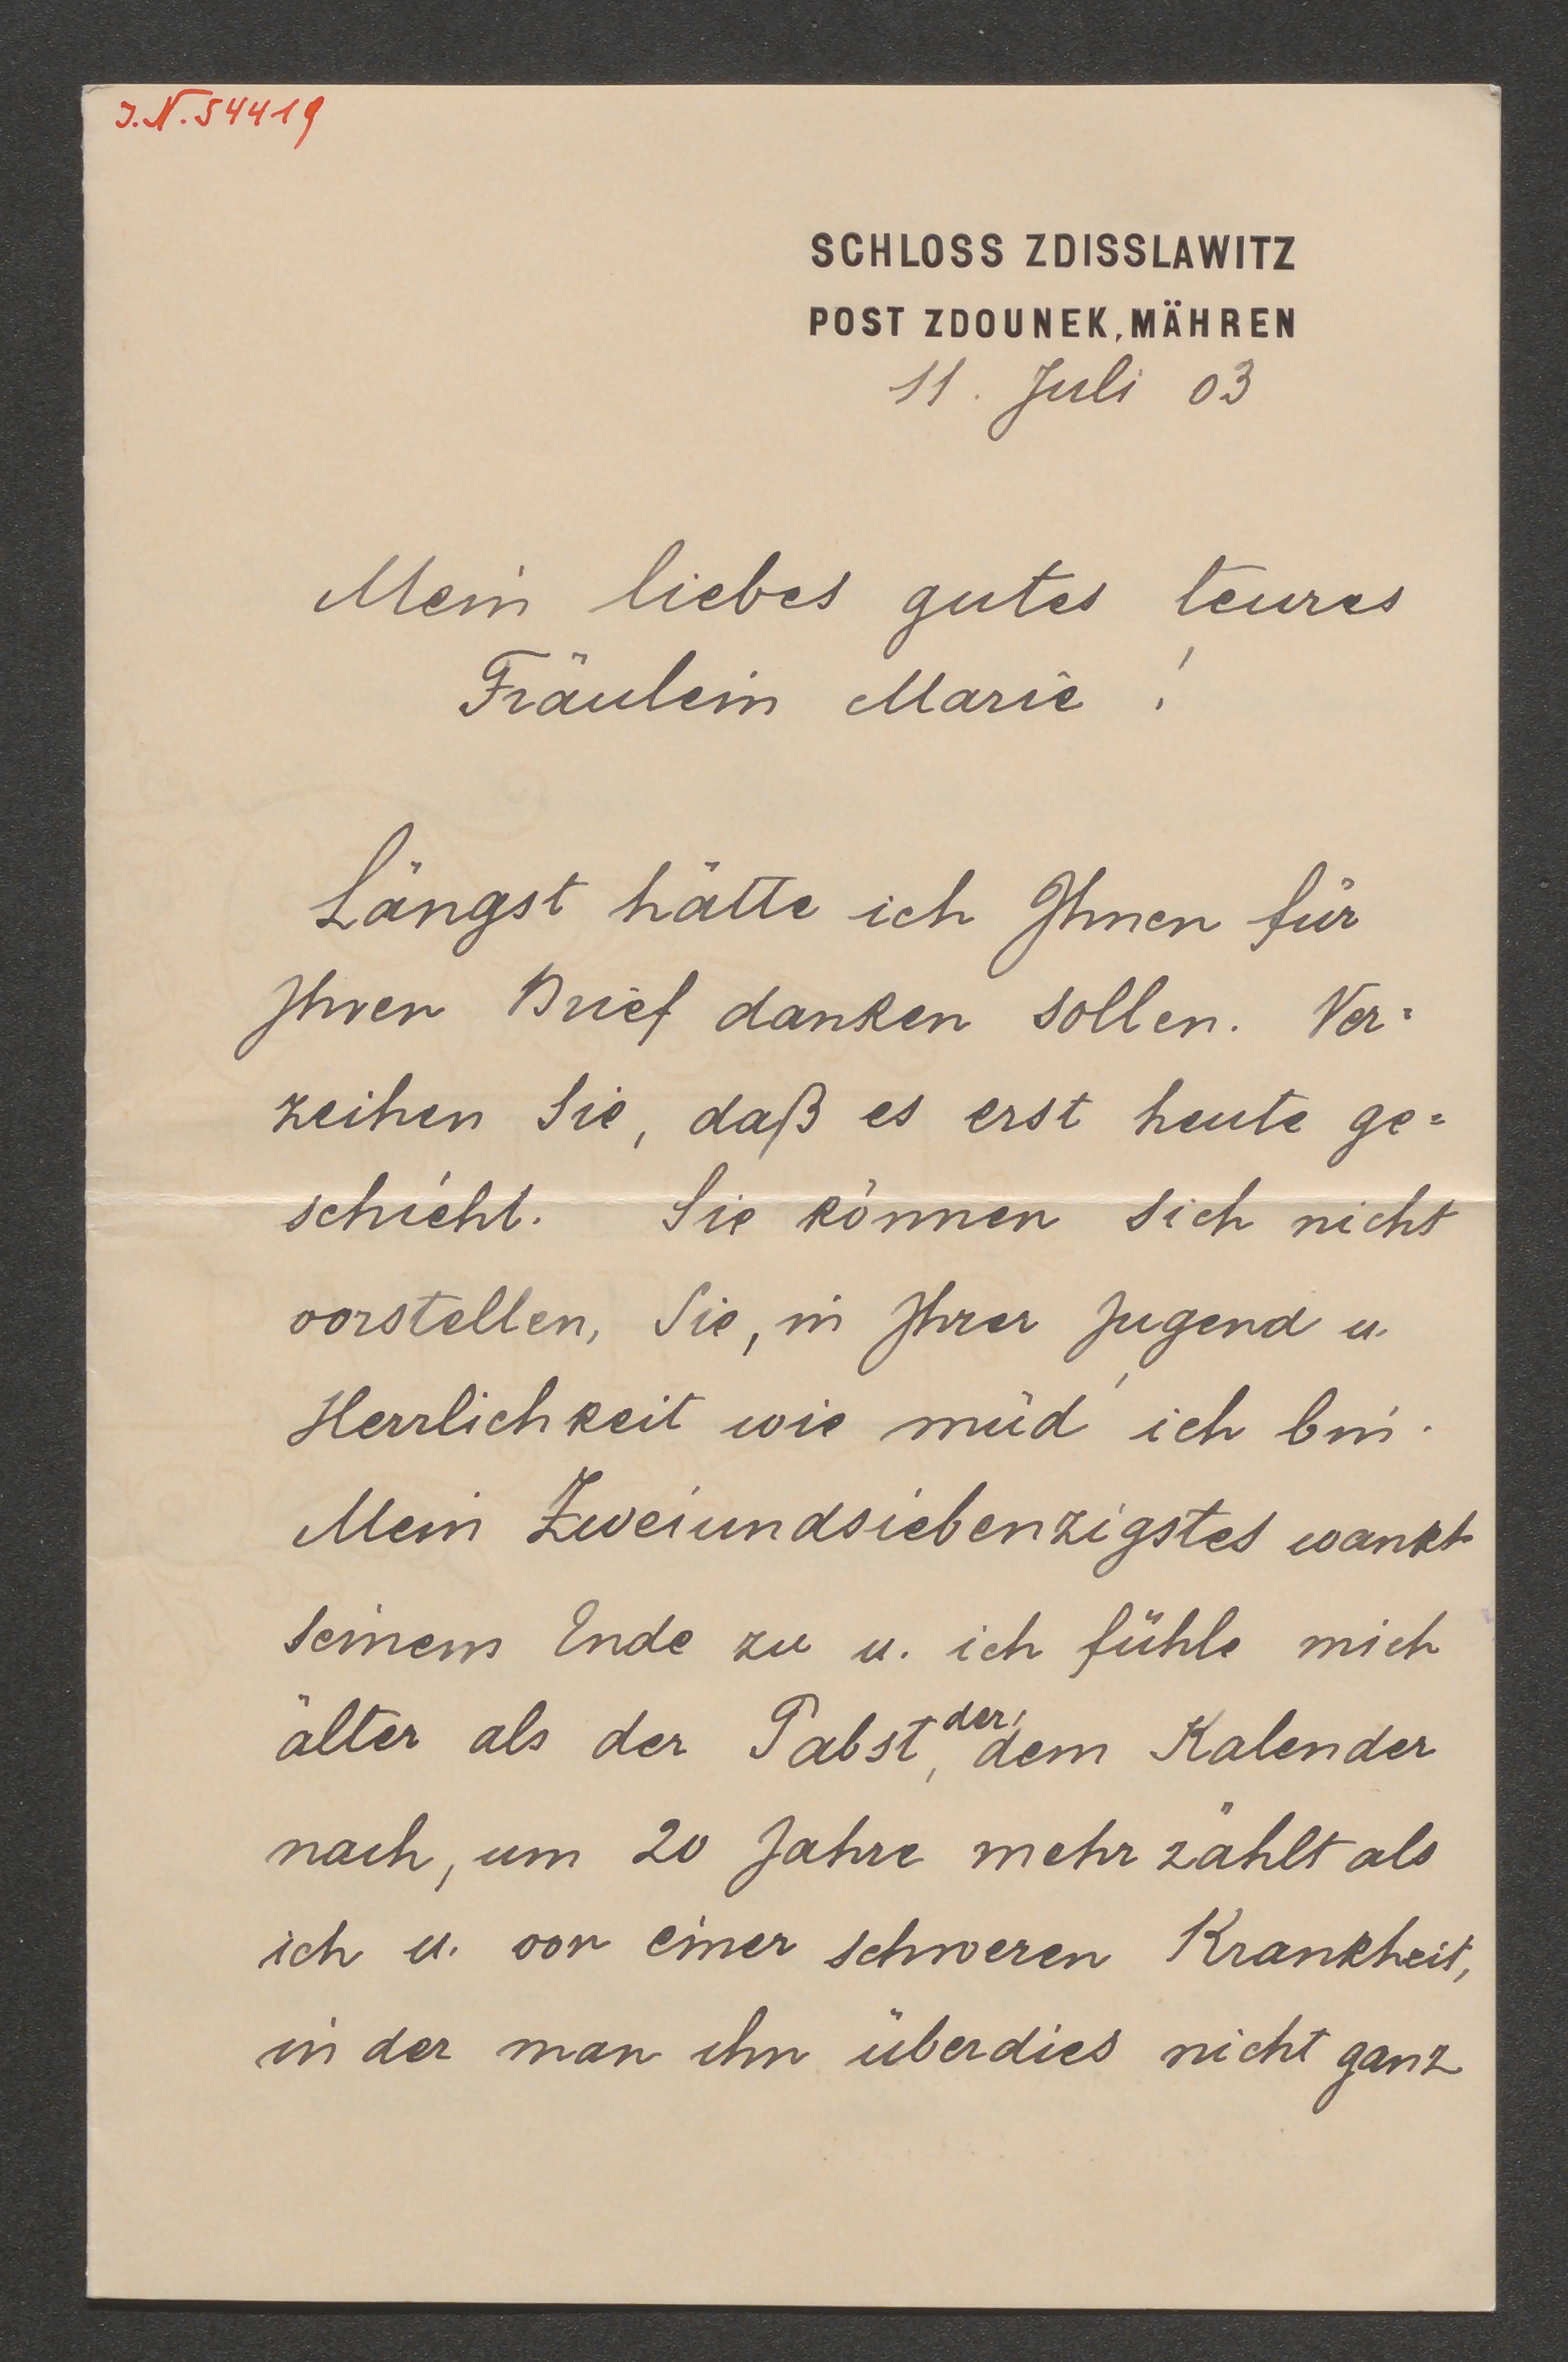 J.N. 54419
SCHLOSS ZDISSLAWITZ
POST ZDOUNEK, MÄHREN
11. Juli 03
Mein liebes gutes teures
Fräulein Marie!
Längst hätte ich Ihnen für
Ihren Brief danken sollen. Ver=
zeihen Sie, daß es erst heute ge=
schieht. Sie können sich nicht
vorstellen, Sie, in Ihrer Jugend u.
Herrlichkeit wie müd' ich bin.
Mein Zweiundsiebenzigstes wankt
seinem Ende zu u. ich fühle mich
älter als der Pabst, der, dem Kalender
nach, um 20 Jahre mehr zählt als
ich u. vor einer schweren Krankheit,
in der man ihn überdies nicht ganz